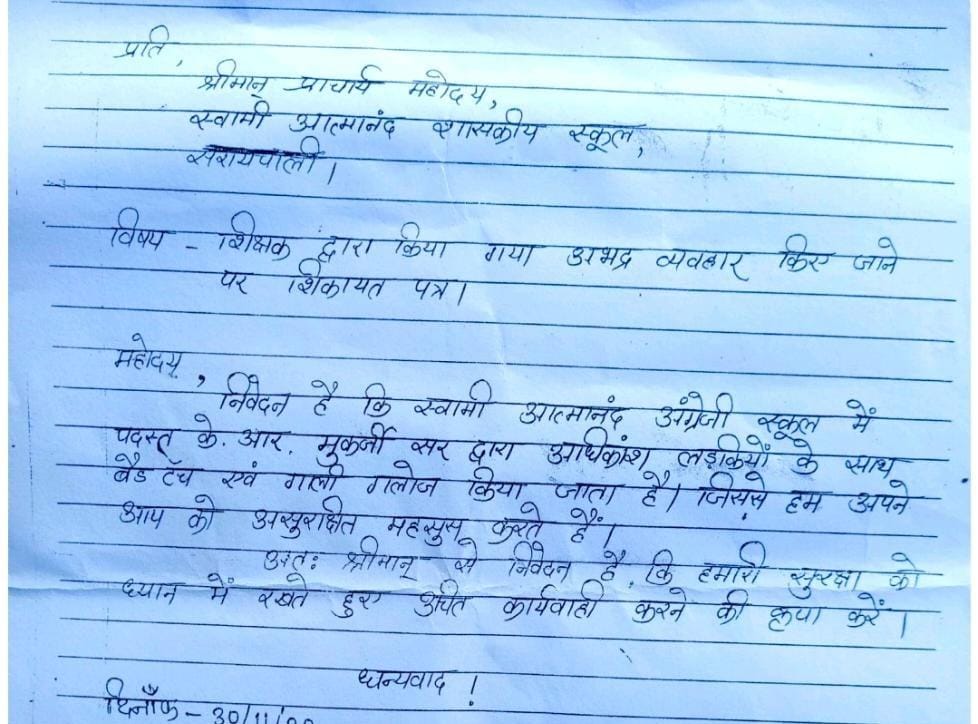 प्रति,
श्रीमान् प्राचार्य महोदय,
स्वामी आत्मानंद शासकीय स्कूल,
सरायपाली।
विषय - शिक्षक द्वारा किया गया अभद्र व्यवहार किए जाने
पर शिकायत पत्र।
महोदय,
निवेदन है कि स्वामी आत्मानंद अंग्रेजी स्कूल में
पदस्त के. आर. मुकर्जी सर द्वारा अधिकांश लड़कियों के साथ
बैड टच एवं गाली गलोज किया जाता है। जिससे हम अपने
आप को असुरक्षित महसुस करते हैं।
अतः श्रीमान् से निवेदन है कि हमारी सुरक्षा को
ध्यान में रखते हुए उचित कार्यवाही करने की कृपा करें।
धन्यवाद !
दिनाँक - 30/11/